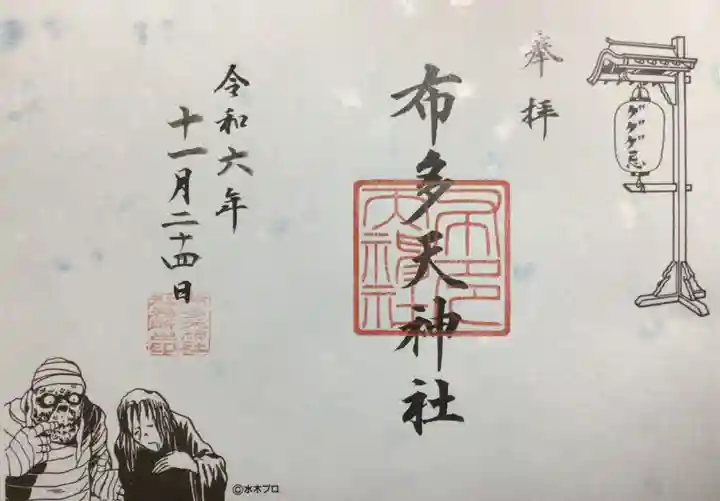 ゲゲゲ忌
奉拝
布多天神社
布多天神社
令和六年
十一月二十四日
©水木プロ